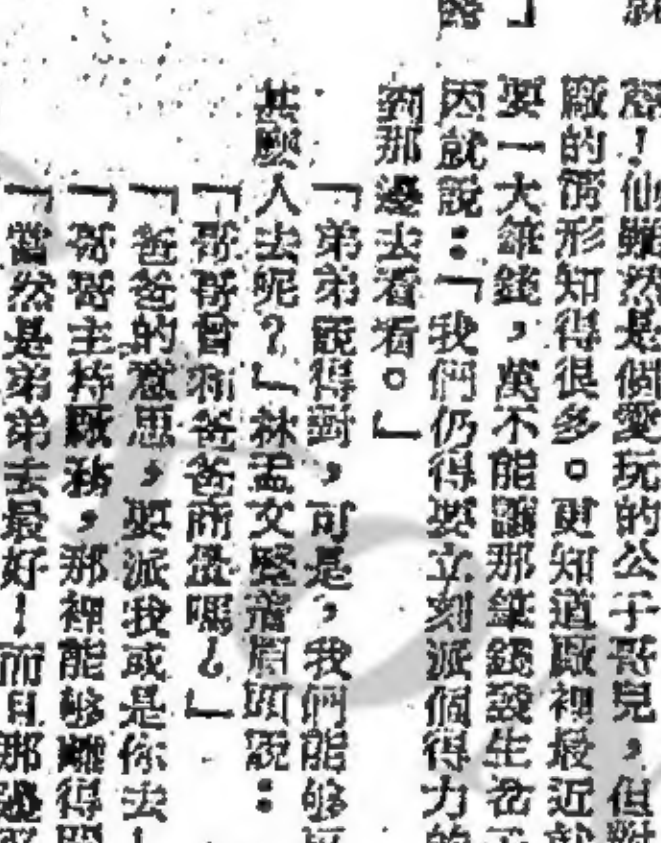 磨！他雖然是個愛玩的公子哥兒，但對
廠的情形知得很多。更知道廠裡最近就
要一大錐錢，萬不能讓那筆錢發生岔子
因就說：「我們仍得要立刻派個得力的
到那邊去看看。」
「弟弟說得對，可是，我們能够
甚麽人去呢？」林孟文堅着眉頭說：
「哥哥曾和爸爸商量嗎？」
「爸爸的意思，要派我或是你去！
「哥哥主持廠務，那裡能够離得開
「當然是弟弟去最好！而且那邊